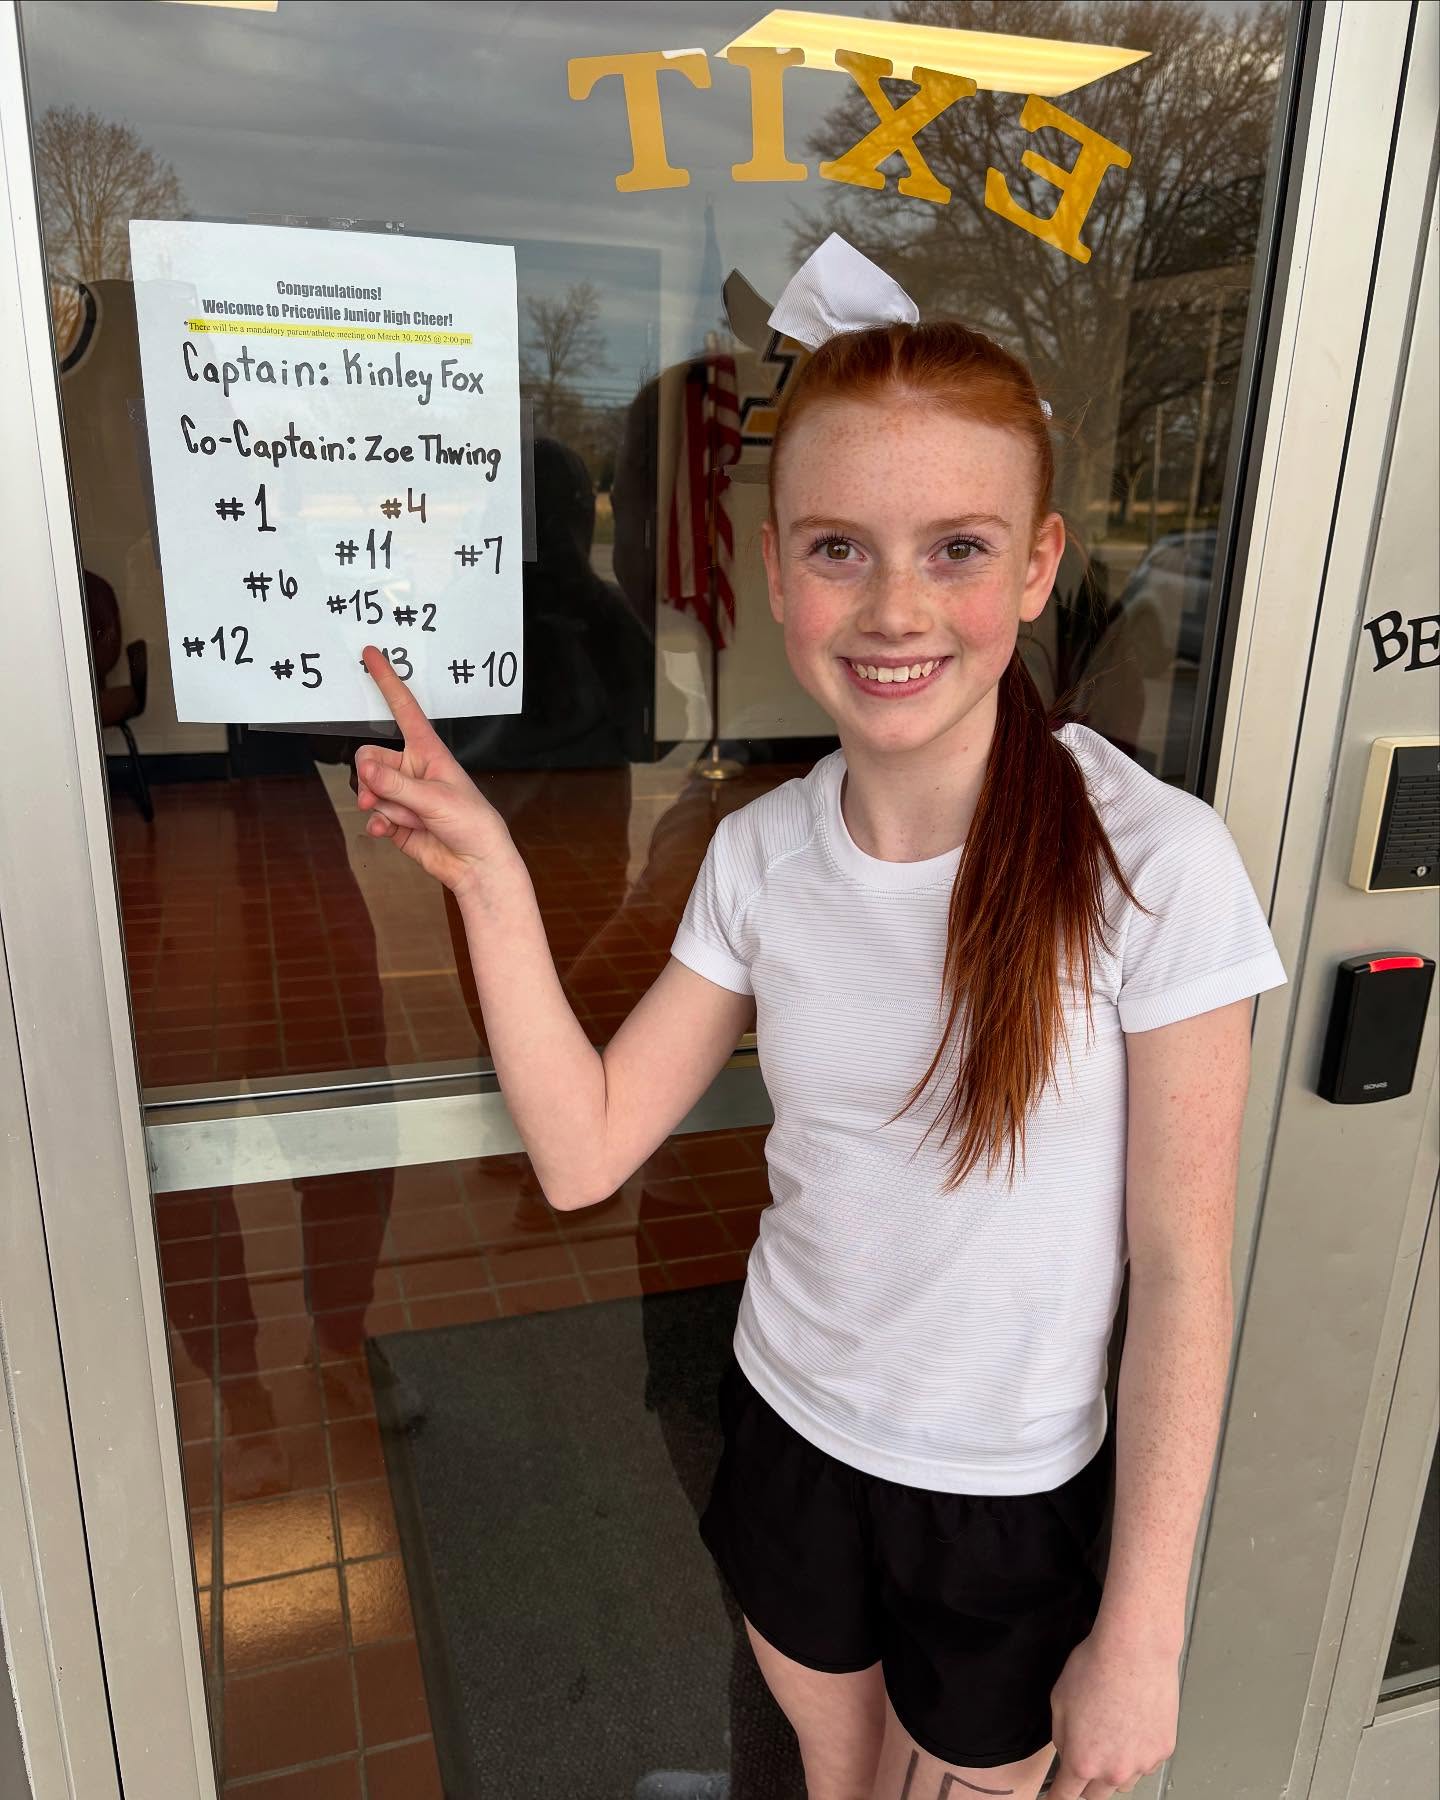 EXIT
Congratulations!
Welcome to Priceville Junior High Cheer!
*There will be a mandatory parent/athlete meeting on March 30, 2025 @ 2:00 pm.
Captain: Kinley Fox
Co-Captain: Zoe Thwing
#1 #4
#11 #7
#6 #15 #2
#12 #5 #13 #10
BE